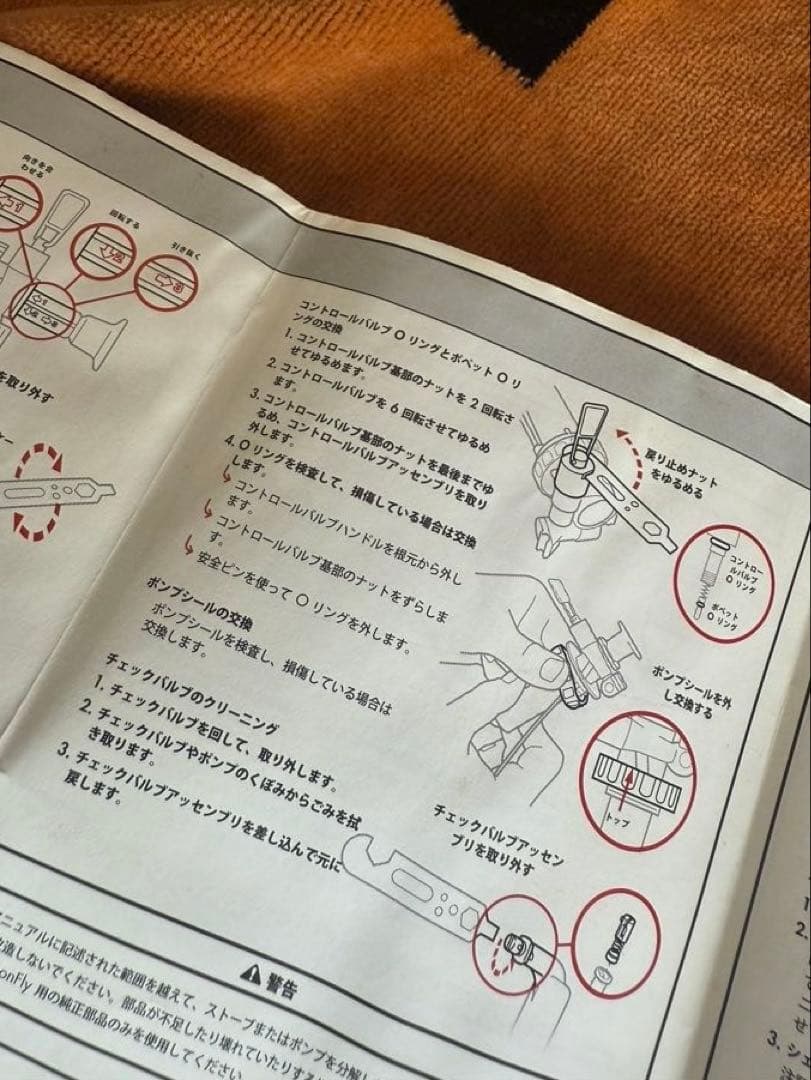 向きを合
わせる
回転する
引き抜く
を取り外す
コントロールバルブ O リングとポペット O リ
ングの交換
1. コントロールバルブ基部のナットを 2 回転さ
せてゆるめます。
2. コントロールバルブを 6 回転させてゆるめ
ます。
3. コントロールバルブ基部のナットを最後までゆ
るめ、コントロールバルブアッセンブリを取り
外します。
4. O リングを検査して、損傷している場合は交換
します。
コントロールバルブハンドルを根元から外し
ます。
コントロールバルブ基部のナットをずらしま
す。
安全ピンを使って O リングを外します。
ポンプシールの交換
ポンプシールを検査し、損傷している場合は
交換します。
チェックバルブのクリーニング
1. チェックバルブを回して、取り外します。
2. チェックバルブやポンプのくぼみからごみを拭
き取ります。
3. チェックバルブアッセンブリを差し込んで元に
戻します。
戻り止めナット
をゆるめる
コントロー
ルバルブ
O リング
ポペット
O リング
ポンプシールを外
し交換する
トップ
チェックバルブアッセン
ブリを取り外す
警告
マニュアルに記述された範囲を越えて、ストーブまたはポンプを分解し
改造しないでください。部品が不足したり壊れていたりする
onFly 用の純正部品のみを使用してください。
2.
3. ジェ